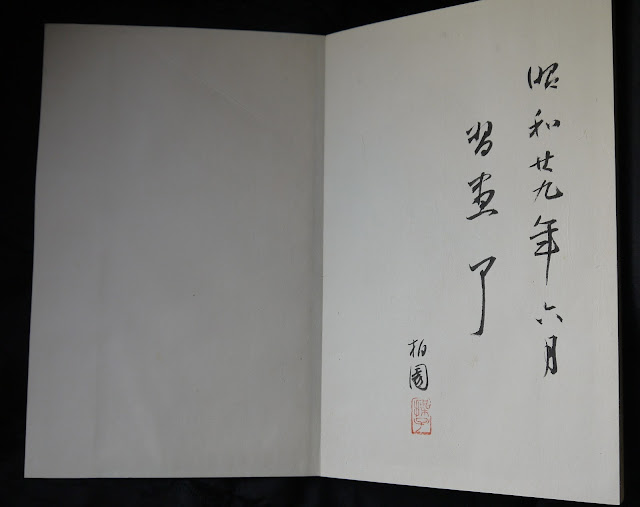 昭和廿九年六月
習画了
柏園